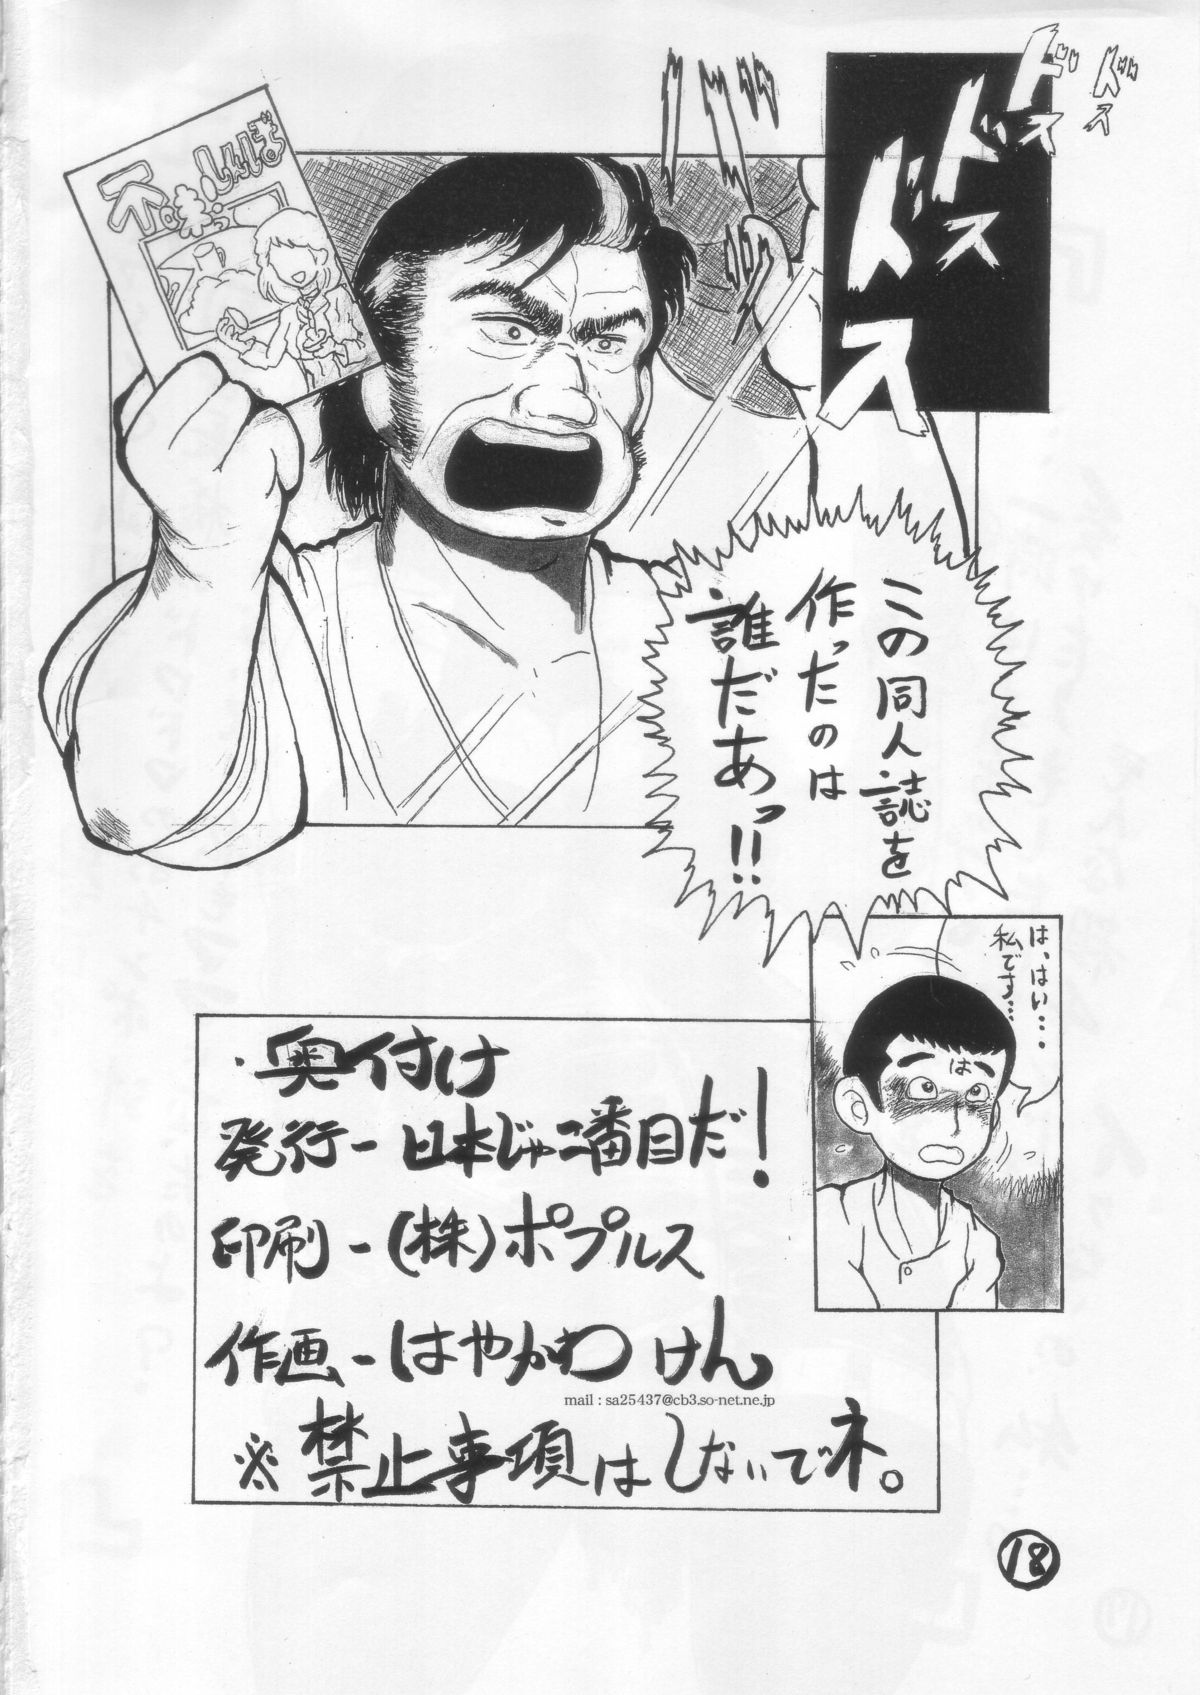 ドス
ドス
ドス
ドス
不味しんぼ
この同人誌を
作ったのは
誰だあっ!!
は、はい・・・
私です・・・
は
・奥付け
発行ー日本じゃ二番目だ!
印刷ー(株)ポプルス
作画ーはやかわ けん
mail : sa25437@cb3.so-net.ne.jp
※禁止事項はしないでネ。
18